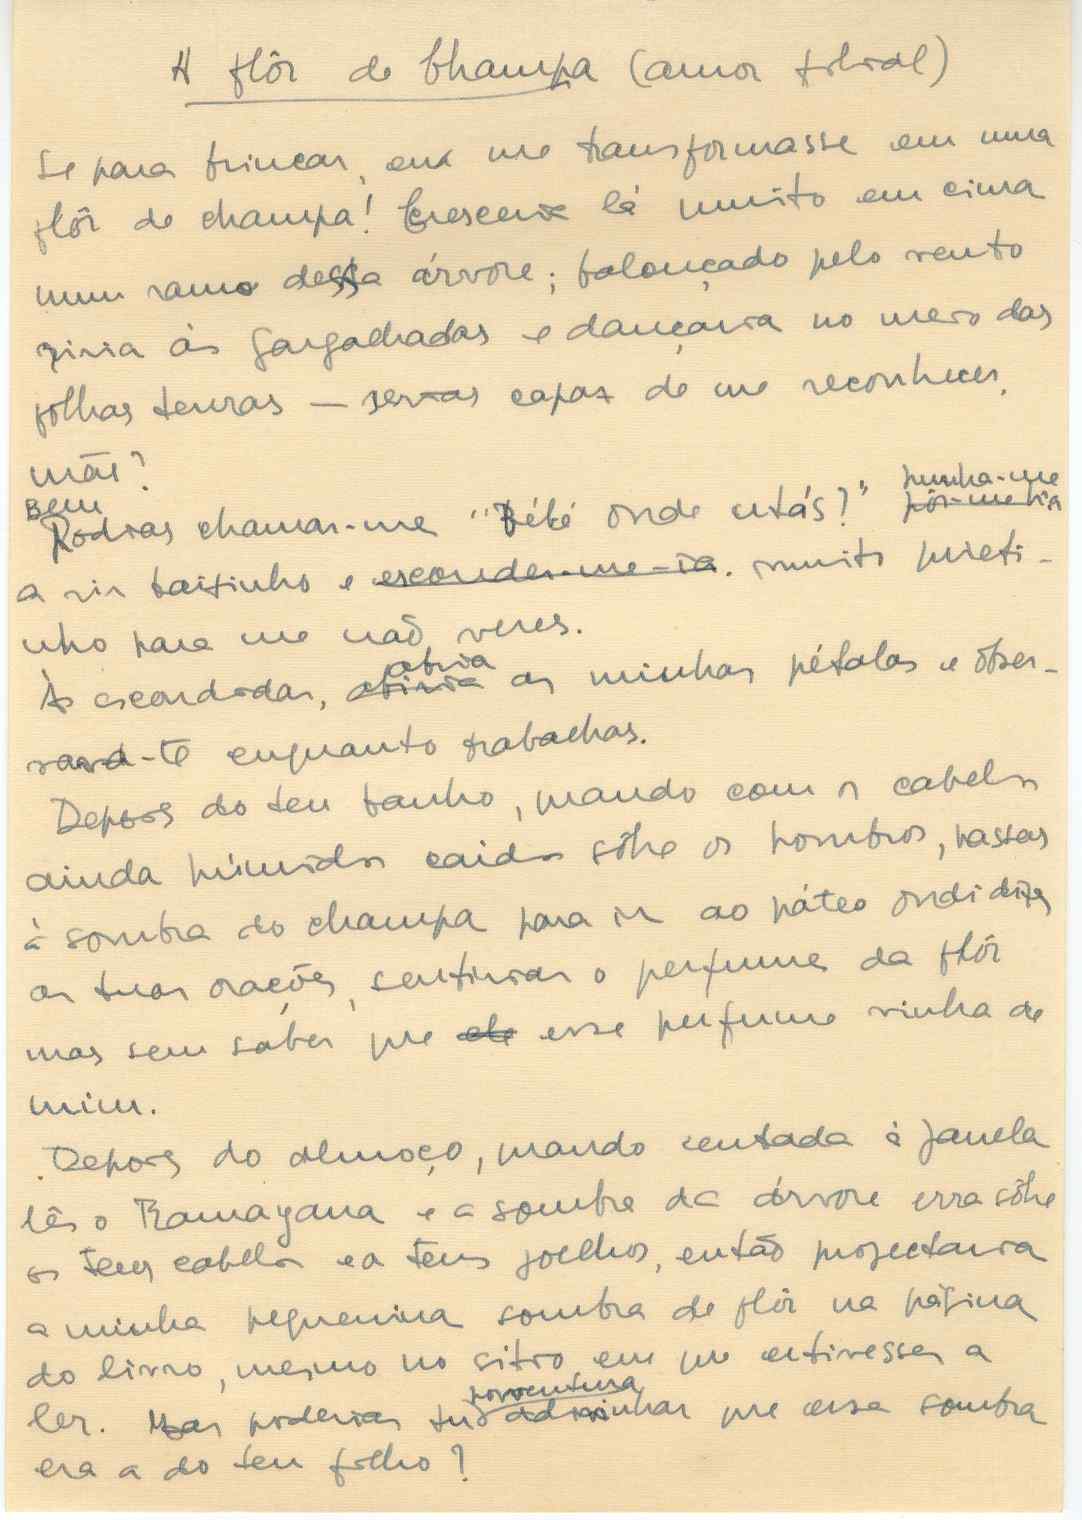 A flôr de Champa (amor filial)
Se para brincar, eu me transformasse em uma
flôr de champa! Cresceria lá muito em cima
num ramo dessa árvore; balouçado pelo vento
riria às gargalhadas e dançaria no meio das
folhas tenras — serias capaz de me reconhecer,
mãe?
Bem punha-me
Podias chamar-me "Bébé onde estás?" pôr-me-hia
a rir baixinho e esconder-me-ia. muito quieti-
nho para me não veres.
abria
Às escondidas, abriria as minhas pétalas e obser-
vava-te enquanto trabalhas.
Depois do teu banho, quando com os cabelos
ainda húmidos caidos sôbre os hombros, passas
à sombra do champa para ir ao páteo onde dizes
as tuas orações, sentirias o perfume da flôr
mas sem saber que ele esse perfume vinha de
mim.
Depois do almoço, quando sentada à janela
lês o Ramayana e a sombra da árvore erra sôbre
os teus cabelos e os teus joelhos, então projectaria
a minha pequenina sombra de flôr na página
do livro, mesmo no sitio em que estivesses a
porventura
ler. Mas poderias tu adivinhar que essa sombra
era a do teu filho?